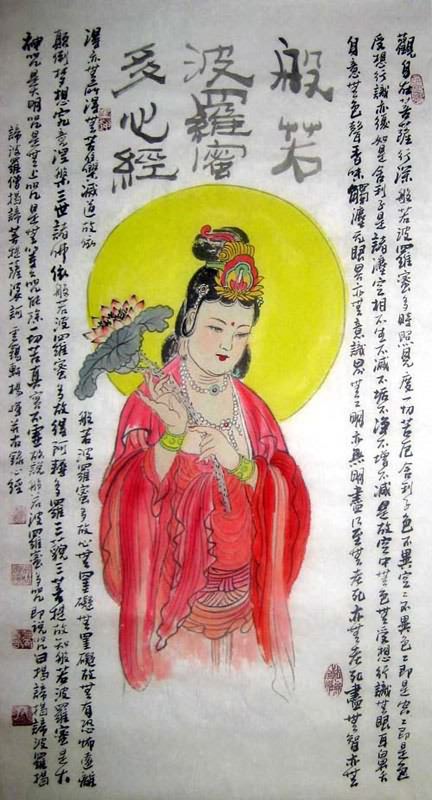 般若
波羅蜜
多心經
觀自在菩薩行深般若波羅蜜多時照見度一切苦厄舍利子色不異空〻不異色〻即是空〻即是色
受想行識亦復如是舍利子是諸灋空相不生不滅不垢不淨不增不減是故空中無色無受想行識無眼耳鼻舌
身意無色聲香味觸灋无眼界亦無意識界無〻明亦無明盡乃至無老死亦無老死盡無智亦無
得亦無所得無苦集滅道故
般若波羅蜜多故心無罣礙無罣礙故無有恐怖遠離
顛倒夢想究竟涅槃三世諸佛依般若波羅蜜多故得阿耨多羅三藐三菩提故知般若波羅蜜是大
神咒是大明咒是無上咒是無等〻咒能除一切苦真實不虛故說般若波羅蜜多咒即說咒曰揭諦揭諦波羅揭
諦波羅僧揭諦菩提薩婆訶 錄心經